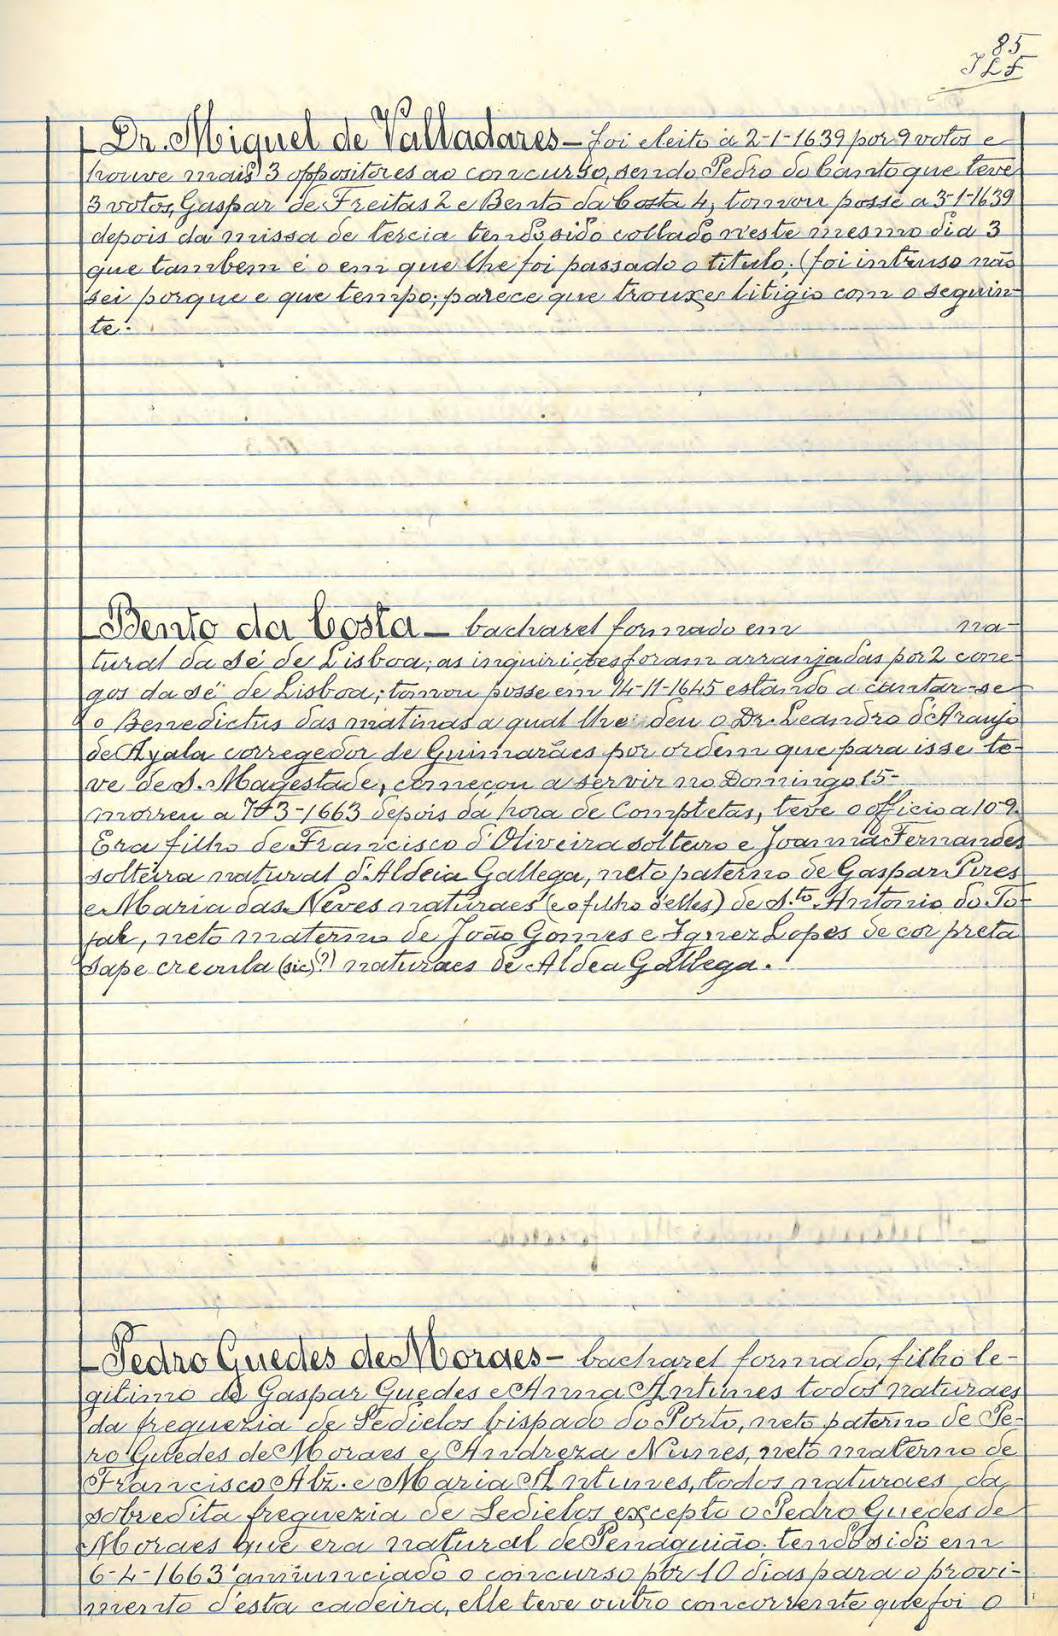 85
JLF
Dr. Miguel de Valladares - foi eleito a 2-1-1639 por 9 votos e
houve mais 3 oppositores ao concurso, sendo Pedro do Canto que teve
3 votos, Gaspar de Freitas 2 e Bento da Costa 4; tomou posse a 3-1-1639
depois da missa de tercia tendo sido collado n'este mesmo dia 3
que tambem é o em que lhe foi passado o titulo; (foi intruso não
sei porque e que tempo; parece que trouxe litigio com o seguin-
te.
Bento da Costa - bacharel formado em na-
tural da Sé de Lisboa; as inquirições foram arranjadas por 2 cone-
gos da Sé de Lisboa; tomou posse em 14-11-1645 estando a cantar-se
o Benedictus das matinas a qual lhe deu o Dr. Leandro d'Araujo
de Ayala corregedor de Guimarães por ordem que para isse te-
ve de S. Magestade, começou a servir no Domingo 15-
morreu a 3-1663 depois da hora de Completas, teve o officio a 10-9.
Era filho de Francisco d'Oliveira solteiro e Joanna Fernandes
solteira natural d'Aldeia Gallega, neto paterno de Gaspar Pires
e Maria das Neves naturaes (e o filho d'elles) de S.to Antonio do To-
jal, neto materno de João Gomes e Ignez Lopes de cor preta
sape creoula (sic)?) naturaes de Aldea Gallega.
Pedro Guedes de Moraes - bacharel formado, filho le-
gitimo de Gaspar Guedes e Anna Antunes todos naturaes
da freguezia de Sedielos bispado do Porto, neto paterno de Pe-
ro Guedes de Moraes e Andreza Nunes, neto materno de
Francisco Alz. e Maria Antunes, todos naturaes da
sobredita freguezia de Sedielos excepto o Pedro Guedes de
Moraes que era natural de Penaguião; tendo sido em
6-4-1663 annunciado o concurso por 10 dias para o provi-
mento d'esta cadeira, elle teve outro concorrente que foi o